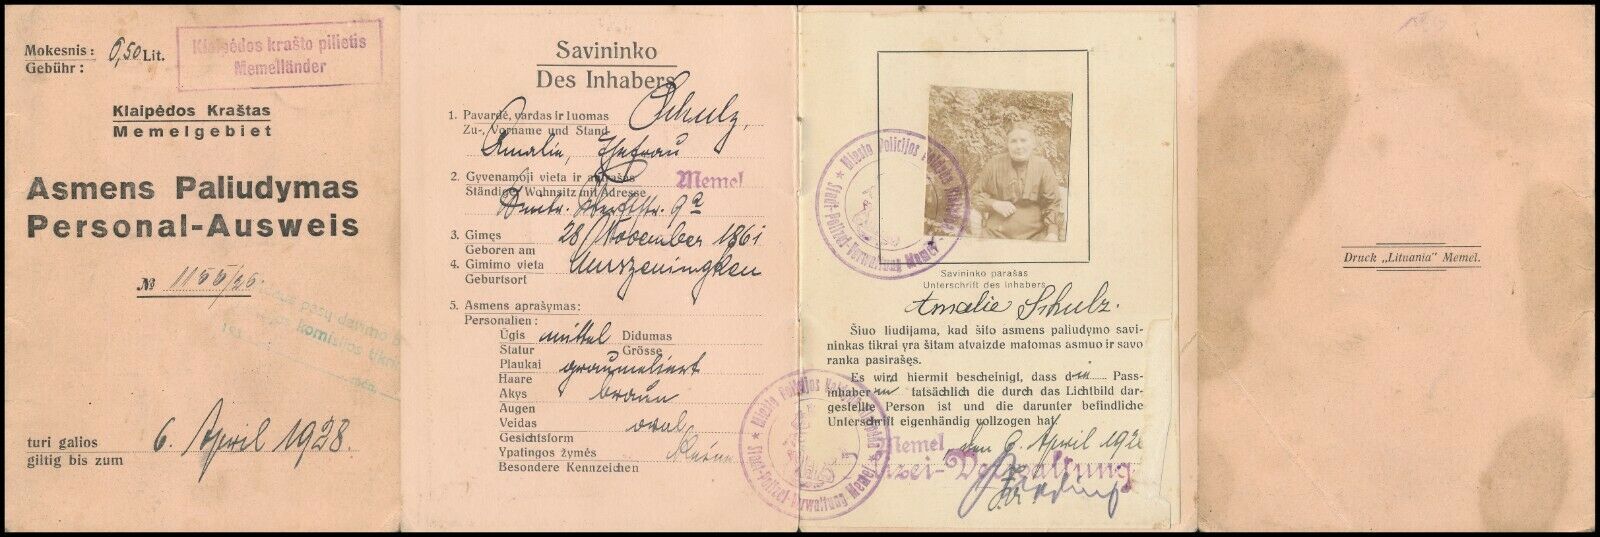 Mokesnis: 0,50 Lit.
Gebühr:
Klaipėdos krašto pilietis
Memelländer
Klaipėdos Kraštas
Memelgebiet
Asmens Paliudymas
Personal-Ausweis
№ 1155/26.
pasų darymo
komisijos
turi galios
giltig bis zum 6. April 1928.
Savininko
Des Inhabers
1. Pavardė, vardas ir luomas Schulz,
Zu-, Vorname und Stand
Amalie, Ehefrau
2. Gyvenamoji vieta ir adresas Memel
Ständiger Wohnsitz mit Adresse
9a
3. Gimęs 28 November 1861
Geboren am
4. Gimimo vieta
Geburtsort
5. Asmens aprašymas:
Personalien:
Ūgis mittel Didumas
Statur Grösse
Plaukai graumeliert
Haare
Akys braun
Augen
Veidas oval
Gesichtsform
Ypatingos žymės Keine
Besondere Kennzeichen
Miesto Policijos Valdyba Klaipėda
Stadt-Polizei-Verwaltung Memel
Savininko parašas
Unterschrift des Inhabers
Amalie Schulz.
Šiuo liudijama, kad šito asmens paliudymo savi-
ninkas tikrai yra šitam atvaizde matomas asmuo ir savo
ranka pasirašęs.
Es wird hiermit bescheinigt, dass die Pass-
inhaberin tatsächlich die durch das Lichtbild dar-
gestellte Person ist und die darunter befindliche
Unterschrift eigenhändig vollzogen hat.
Memel den 6. April 192
Miesto Policijos Valdyba Klaipėda
Stadt-Polizei-Verwaltung Memel
izei-Verwaltung
Druck „Lituania" Memel.